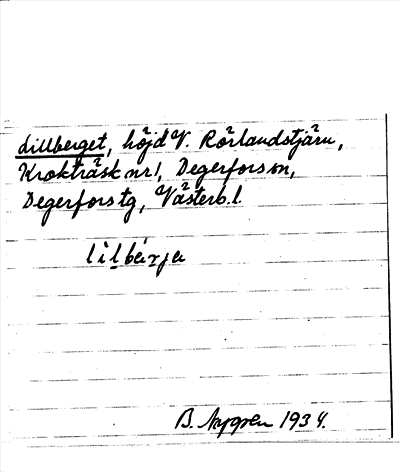 Lillberget, höjd V. Rörlandstjärn,
Krokträsk nr 1, Degerfors sn,
Degerfors tg, Västerb. l.
lìlbárja
B. Nygren 1934.